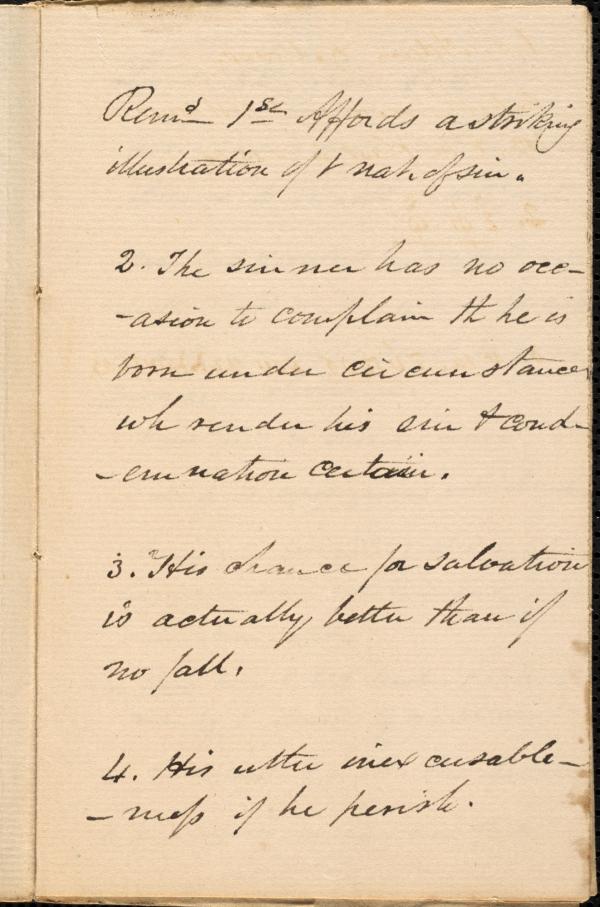 Rem^ds 1st Affords a striking
illustration of t nat. of sin.
2. The sinner has no occ-
-asion to complain th he is
born under circumstances
wh render his sin & cond-
-emnation certain.
3. His chance for salvation
is actually better than if
no fall.
4. His utter inexcusable-
-ness if he perish.